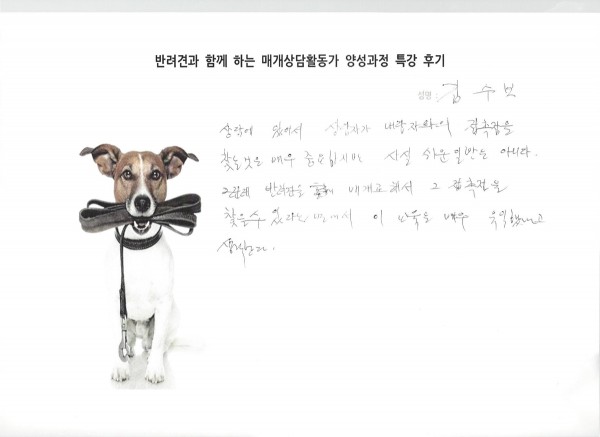 반려견과 함께 하는 매개상담활동가 양성과정 특강 후기
성명 : 김수보
상담에 있어서 상담자가 내담자와의 접촉점을
찾는것은 매우 중요하지만 사실 쉬운일만은 아니다.
그런데 반려견을 매개로 해서 그 접촉점을
찾을수 있다는 면에서 이 교육은 매우 유익했다고
생각한다.